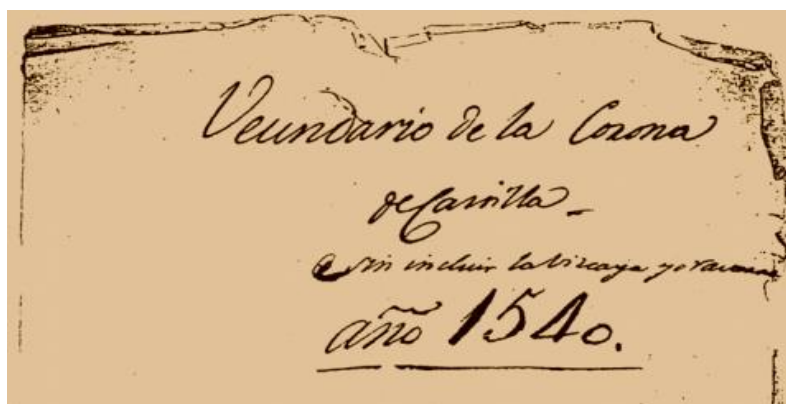 Vecindario de la Corona
de Castilla
sin incluir la Vizcaya y
año 1540.